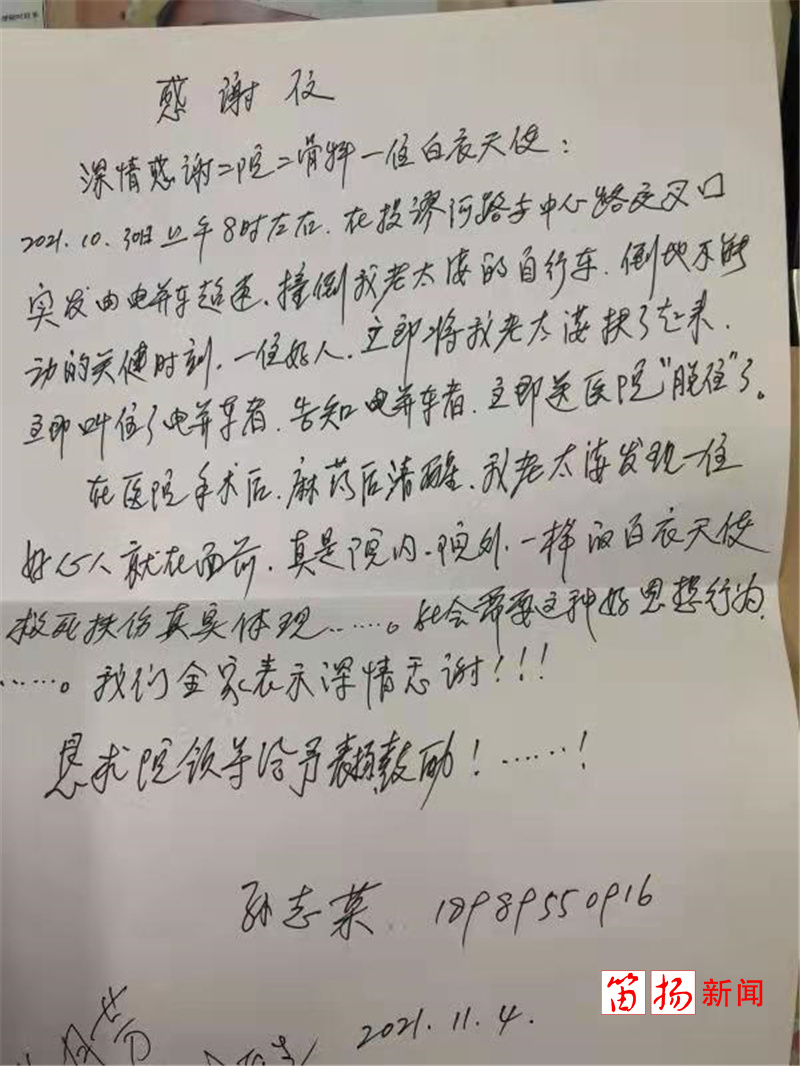 感谢信
深情感谢二院二骨科一位白衣天使：
2021.10.30日上午8时左右.在投醪河路与中心路交叉口
突发由电瓶车超速、撞倒我老太婆的自行车.倒地不能
动的关健时刻.一位好人.立即将我老太婆扶了起来.
立即叫住了电瓶车者.告知电瓶车者.立即送医院“脱住”了。
在医院手术后.麻药后清醒.我老太婆发现一位
好心人就在面前.真是院内.院外.一样的白衣天使
救死扶伤真实体现……。社会需要这种好思想行为.
……。我们全家表示深情感谢！！！
恳求院领导给予表扬鼓励！……！
孙志 18989550916
2021.11.4.
笛扬新闻